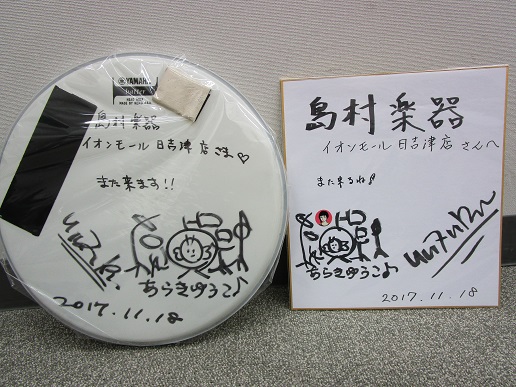 YAMAHA
島村楽器
イオンモール日吉津店さま♡
また来ます!!
あらきゆうこ♪
2017.11.18
島村楽器
イオンモール日吉津店さんへ
また来るね♪
あらきゆうこ♪
2017.11.18